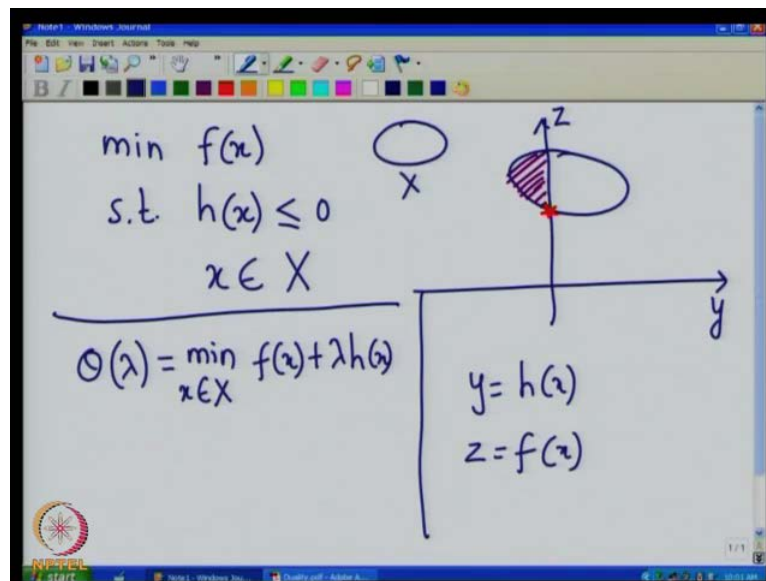 Note1 - Windows Journal
File Edit View Insert Actions Tools Help
B I
min f(x)
s.t. h(x) ≤ 0
x ∈ X
X
z
y
θ(λ) = min f(x) + λh(x)
x∈X
y = h(x)
z = f(x)
NPTEL
1/1
start
Note1 - Windows Jou...
Duality.pdf - Adobe A...
10:01 AM